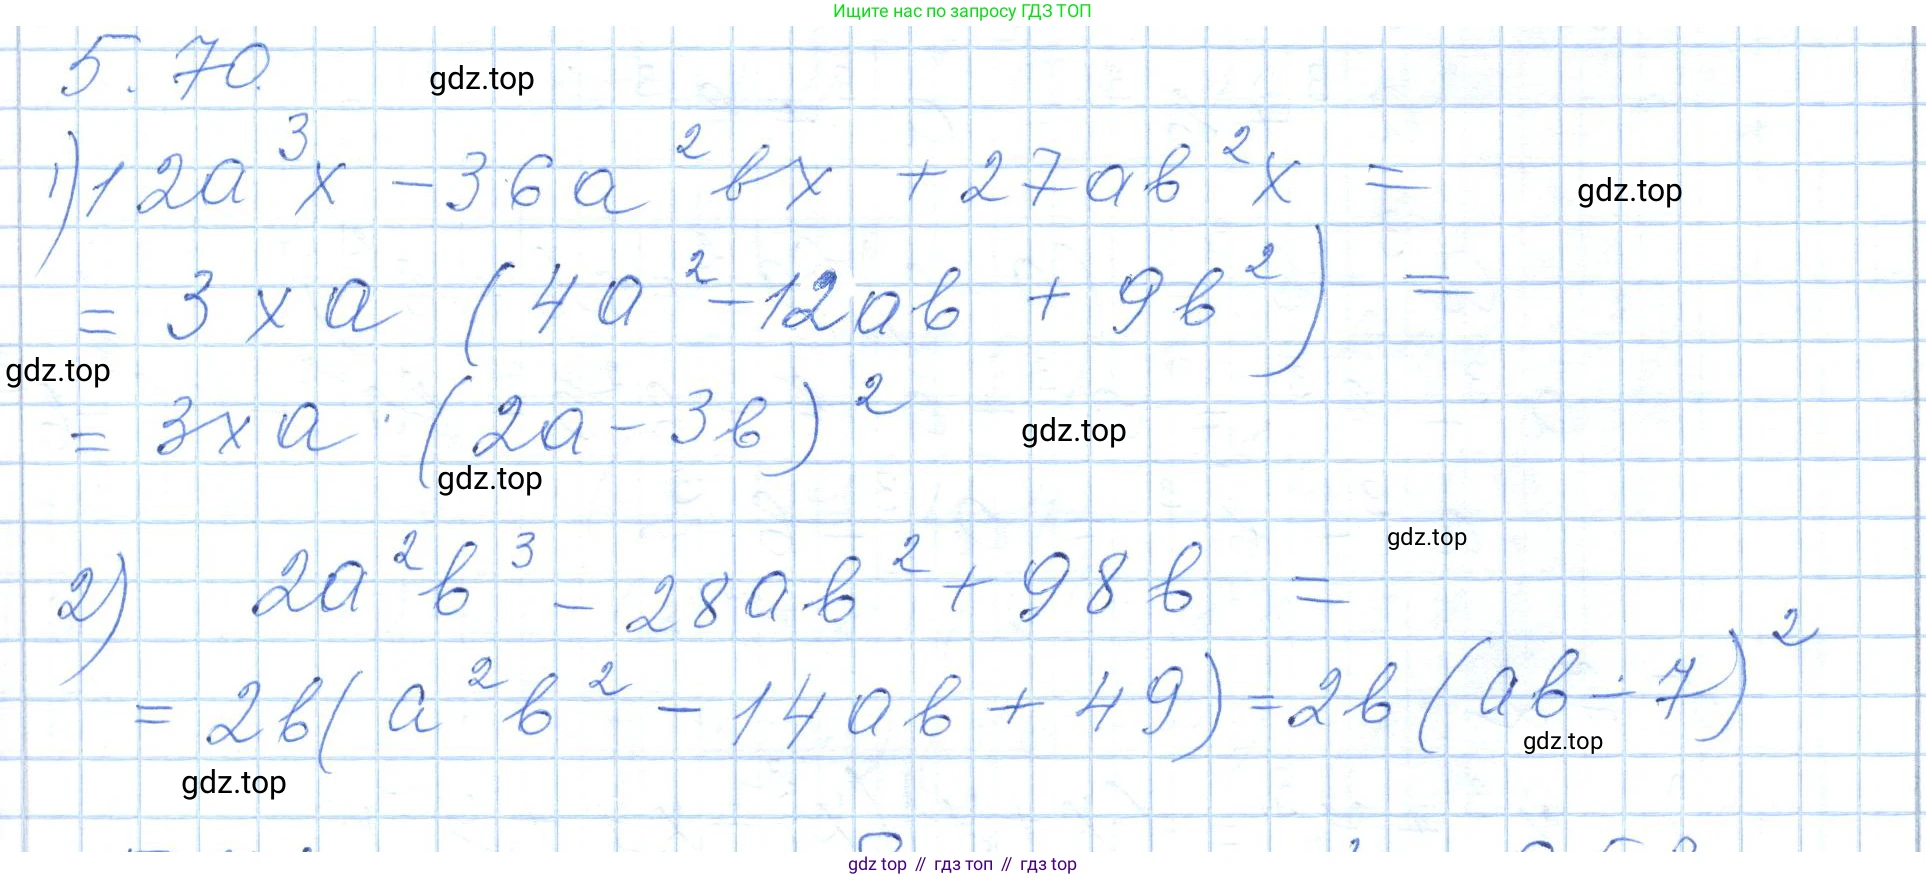 Ищите нас по запросу ГДЗ ТОП
5.70.
gdz.top
1) 12a³x - 36a²bx + 27ab²x =
gdz.top
= 3xa (4a² - 12ab + 9b²) =
gdz.top
= 3xa · (2a - 3b)²
gdz.top
gdz.top
gdz.top
2) 2a²b³ - 28ab² + 98b =
= 2b(a²b² - 14ab + 49) = 2b(ab - 7)²
gdz.top
gdz.top
gdz top // гдз топ // гдз top